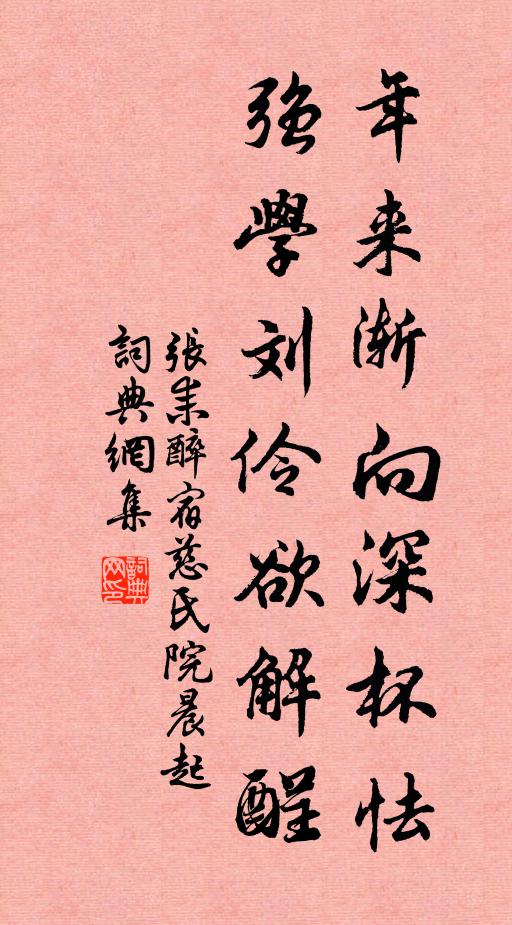 年来渐向深杯怯
强学刘伶欲解酲
張耒醉宿慈氏院晨起
詞典網集
詞典网印